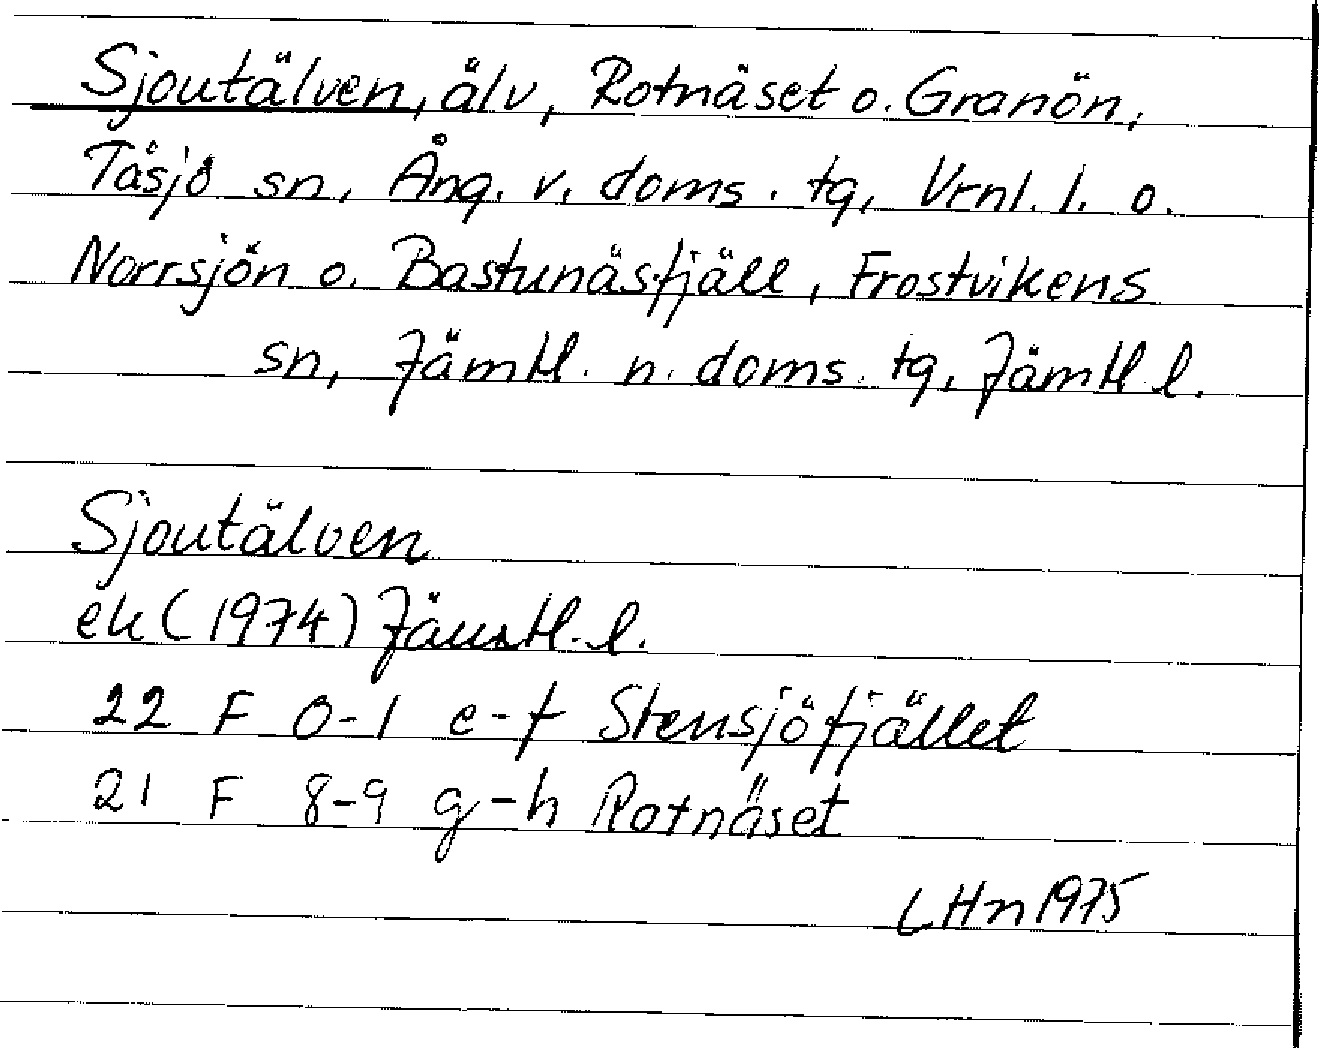 Sjoutälven, älv, Rotnäset o. Granön,
Tåsjö sn, Ång. v. doms. tg, Vrnl. l. o.
Norrsjön o. Bastunäsfjäll, Frostvikens
sn, Jämtl. n. doms. tg, Jämtl l.
Sjoutälven
ek (1974) Jämtl. l.
22 F 0-1 e-f Stensjöfjället
21 F 8-9 g-h Rotnäset
LHn 1975